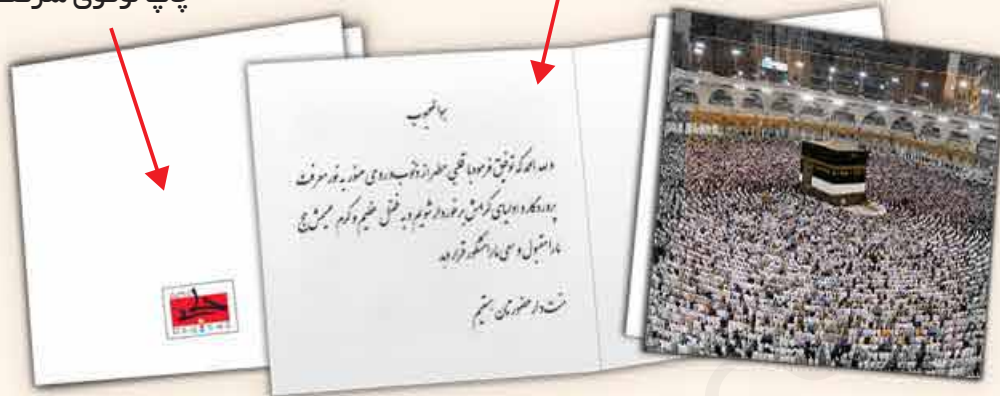 چاپ لوگوی شرکت
هوالمحبوب
ولله الحمد که توفیق فرمود با قلبی مطهر از ذنوب و روحی منور به نور معرفت
پروردگار و اولیای گرامش برخوردار شویم و به فضل عظیم و کرم عمیمش حج
ما را مقبول و سعی ما را مشکور قرار دهد
منت دار حضورتان هستیم